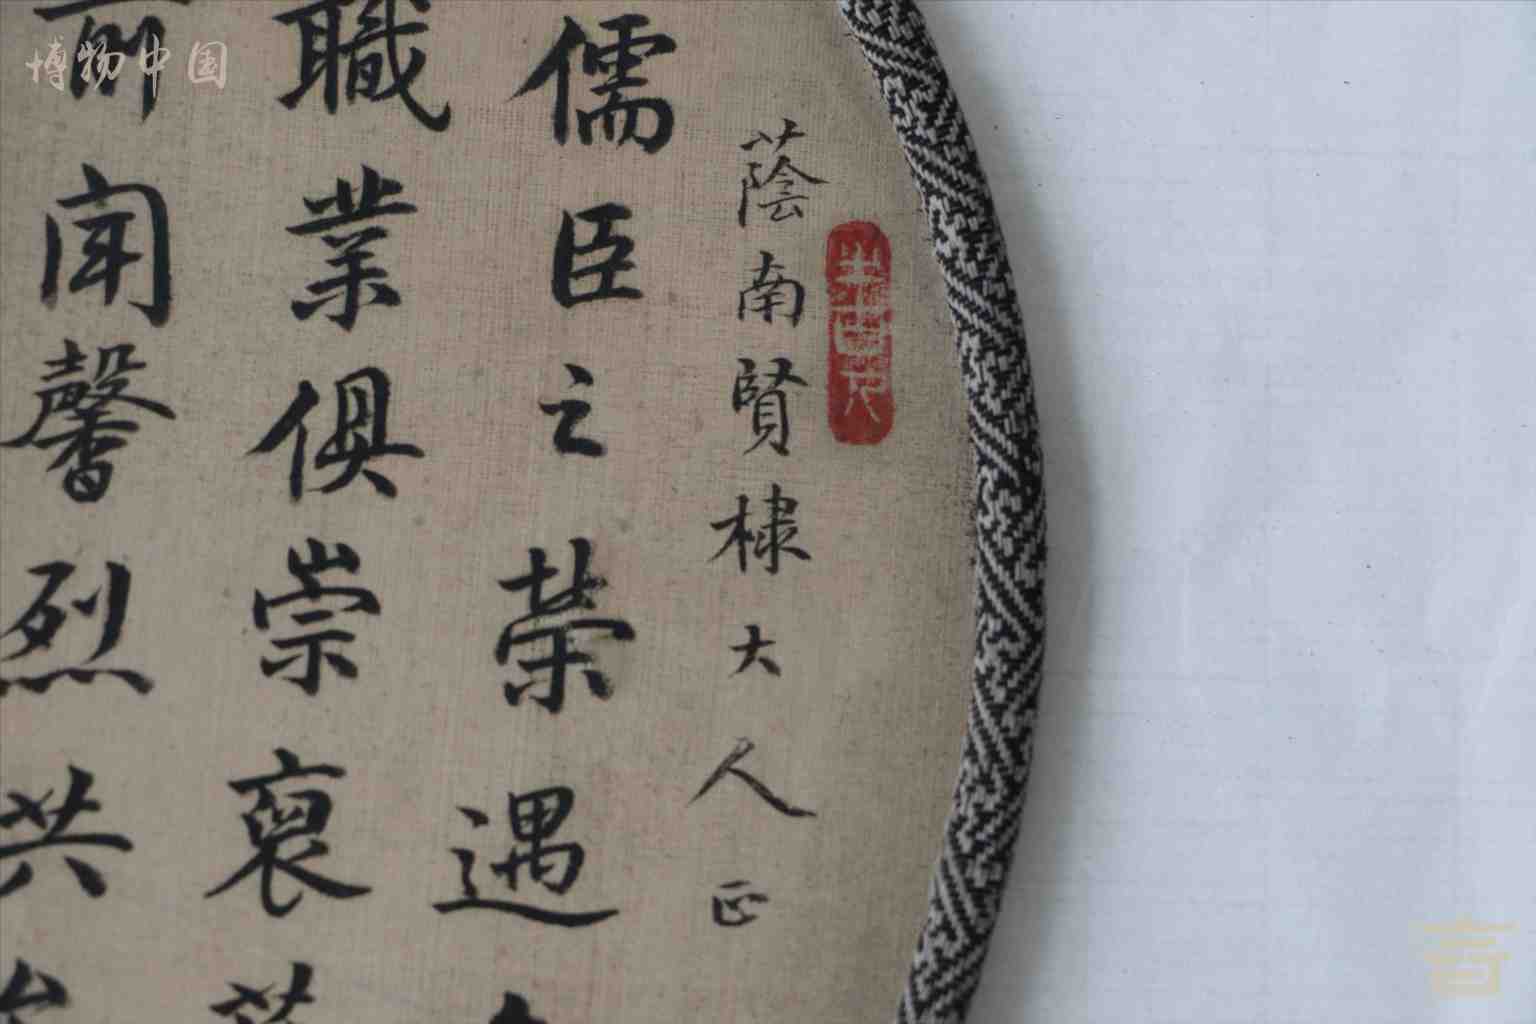 博物中国
蔭南賢棣大人正
儒臣之榮遇
職業俱崇裒
前聞馨烈共